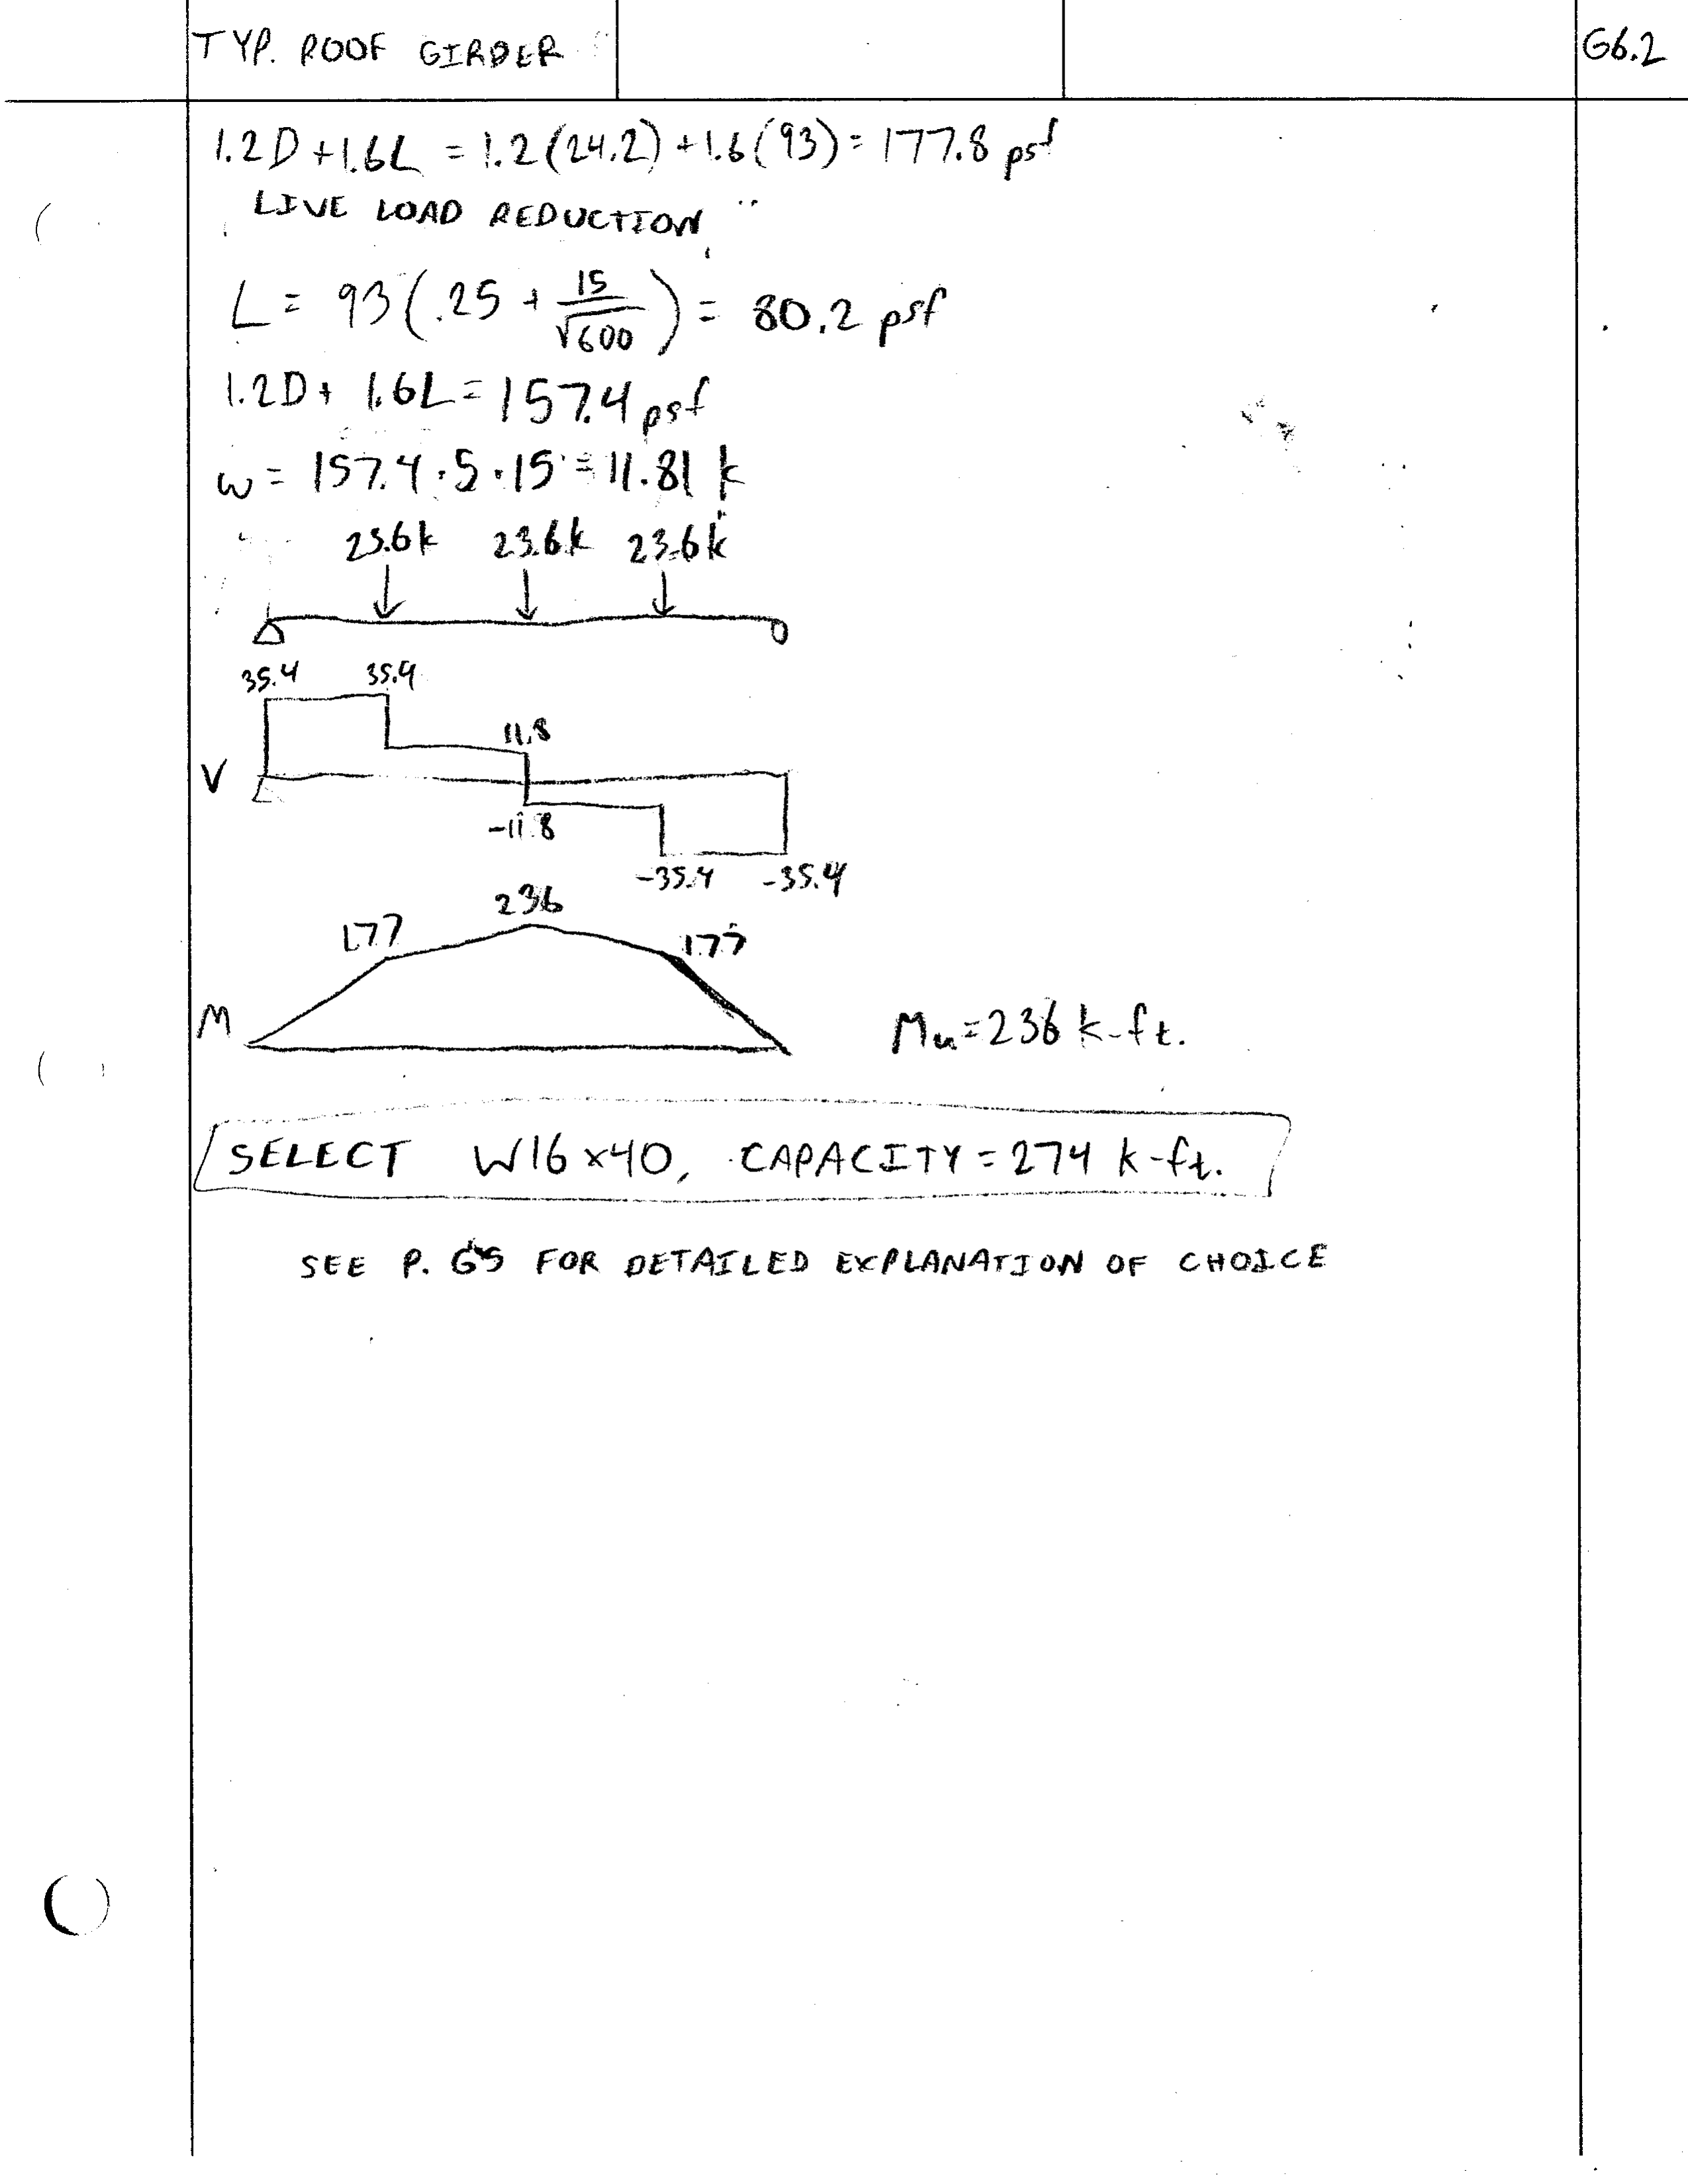 TYP. ROOF GIRDER
G6.2
1.2D + 1.6L = 1.2(24.2) + 1.6(93) = 177.8 psf
LIVE LOAD REDUCTION
L = 93(.25 + 15/√600) = 80.2 psf
1.2D + 1.6L = 157.4 psf
w = 157.4 · 5 · 15 = 11.81 k
23.6k 23.6k 23.6k
35.4 35.4
11.8
V
-11.8
-35.4 -35.4
236
177 177
M
Mu = 236 k-ft.
SELECT W16×40, CAPACITY = 274 k-ft.
SEE P. G5 FOR DETAILED EXPLANATION OF CHOICE